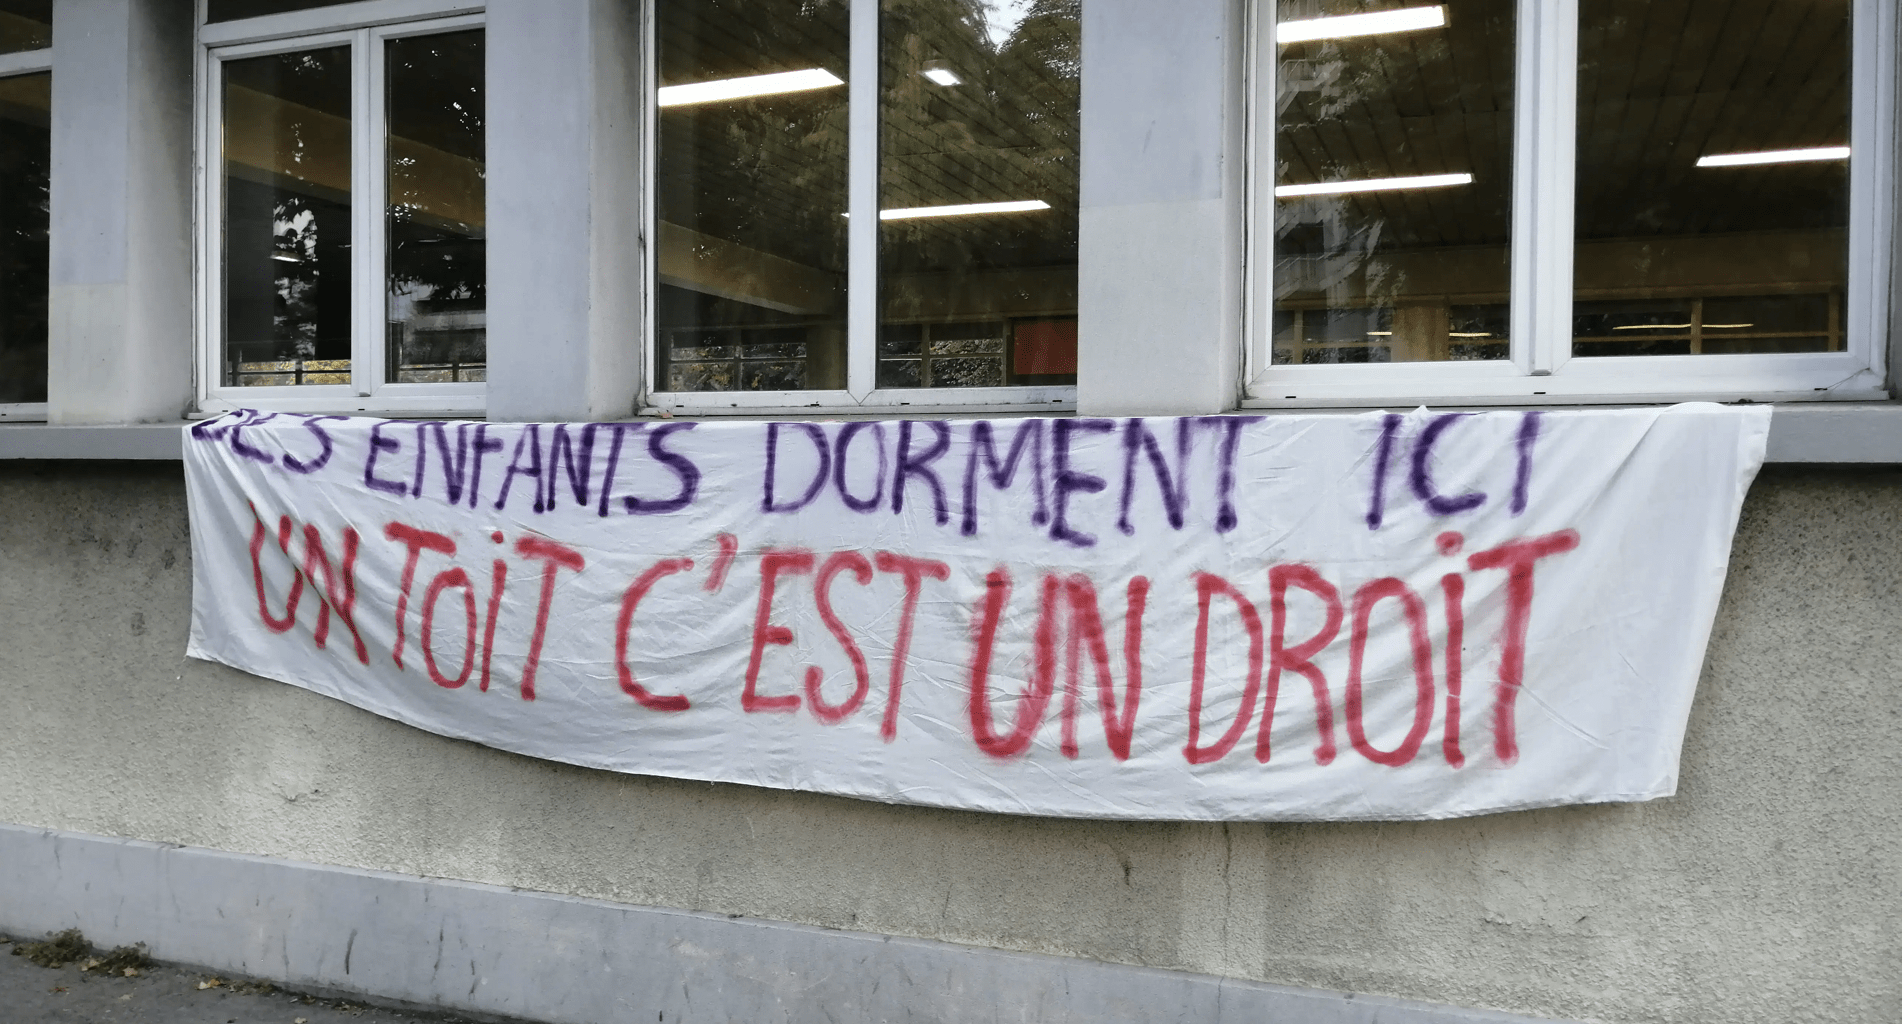 DES ENFANTS DORMENT ICI
UN TOiT C'EST UN DROiT